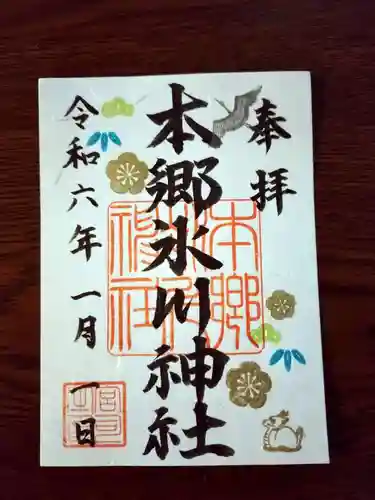 奉拝
本郷氷川神社
令和六年一月一日
本郷氷川神社